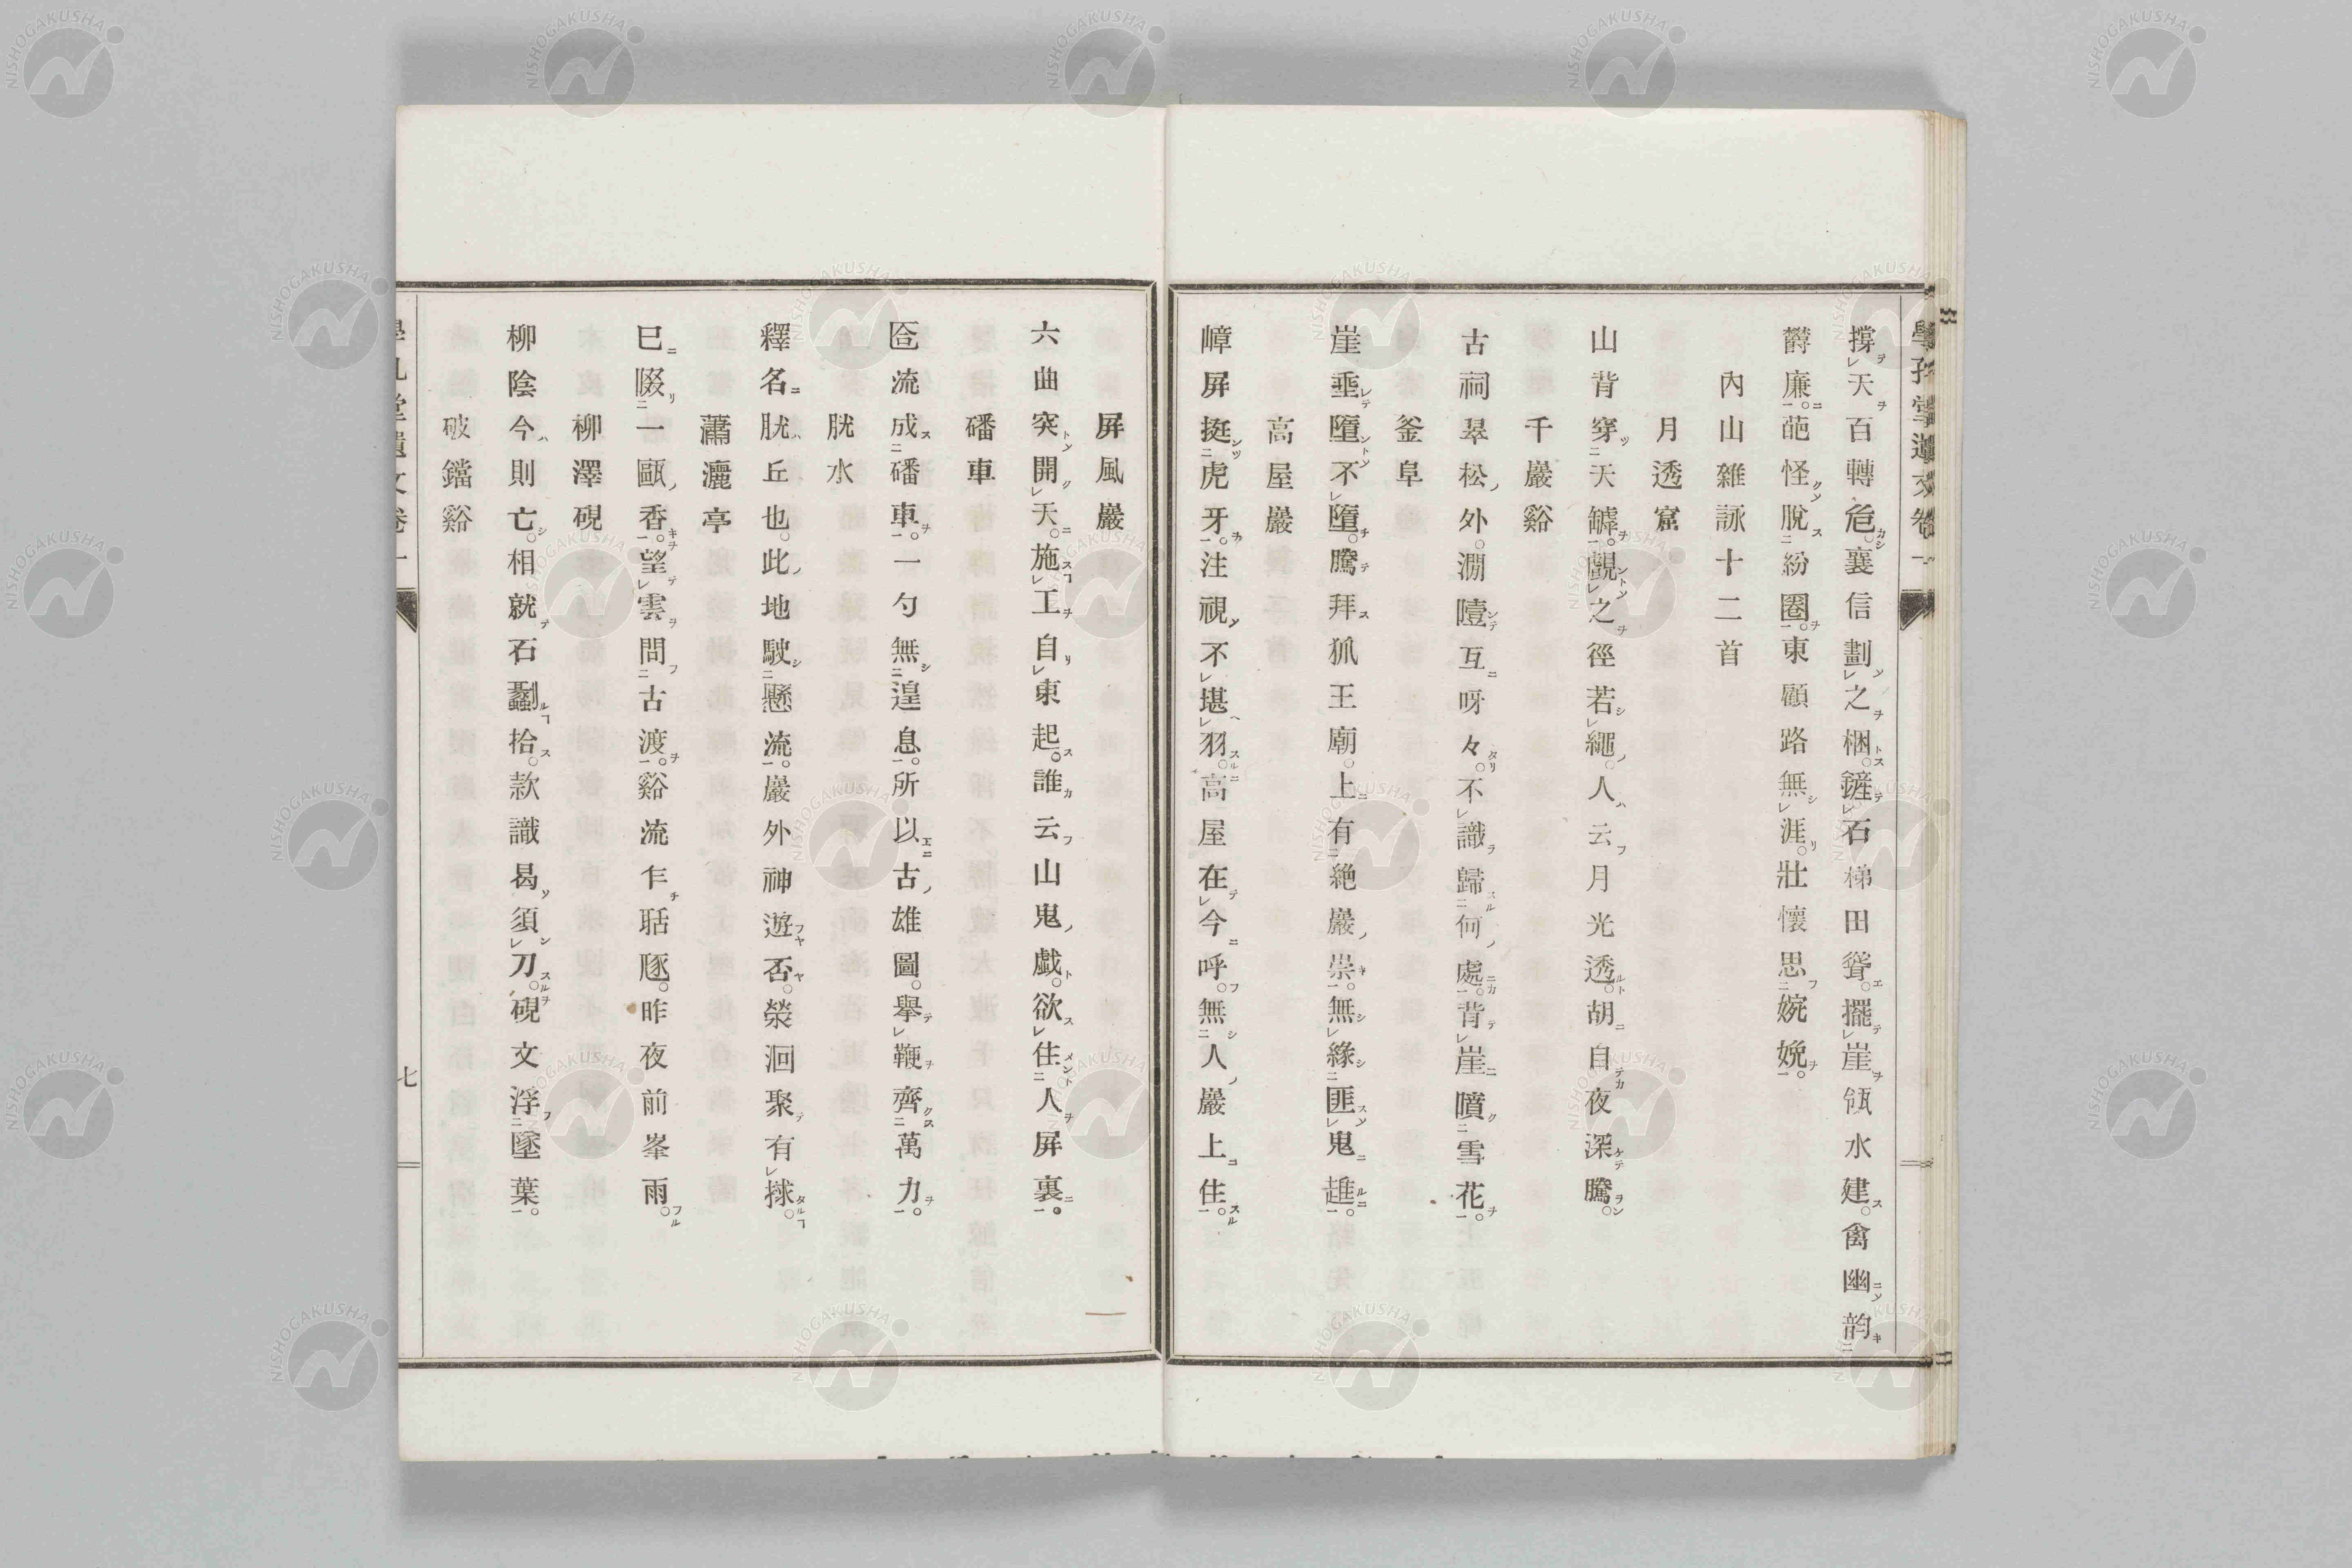 撐天百轉危。襄信劃之梱。鏟石梯田聳。擺崖瓴水建。禽幽韵
欝廉。葩怪脫紛圈。東顧路無涯。壯懷思婉娩。
內山雜詠十二首
月透窟
山背穿天罅。覬之徑若繩。人云月光透。胡自夜深騰。
千巖谿
古祠翠松外。澗噎互呀々。不識歸何處。背崖噴雪花。
釜阜
崖垂墮不墮。騰拜狐王廟。上有絶巖崇。無緣匪鬼趡。
高屋巖
嶂屏挺虎牙。注視不堪羽。高屋在今呼。無人巖上住。
屏風巖
六曲突開天。施工自東起。誰云山鬼戯。欲住人屏裏。
磻車
匼流成磻車。一勺無遑息。所以古雄圖。擧鞭齊萬力。
胱水
釋名胱丘也。此地駛懸流。巖外神遊否。滎洄聚有捄。
蕭灑亭
巳啜一甌香。望雲問古渡。谿流乍聒豗。昨夜前峯雨。
柳澤硯
柳陰今則亡。相就石劙拾。款識曷須刀。硯文浮墜葉。
破鐺谿
七